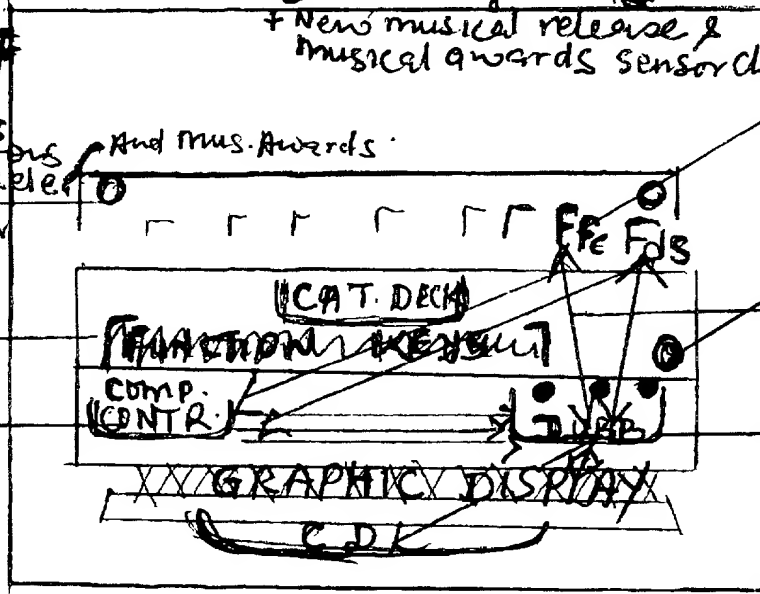 + New musical release &
musical awards sensor
And Mus. Awards.
Ff Fds
CAT. DECK
FUNCTION KEYS
COMP.
CONTR.
DUBB
GRAPHIC DISPLAY
CD